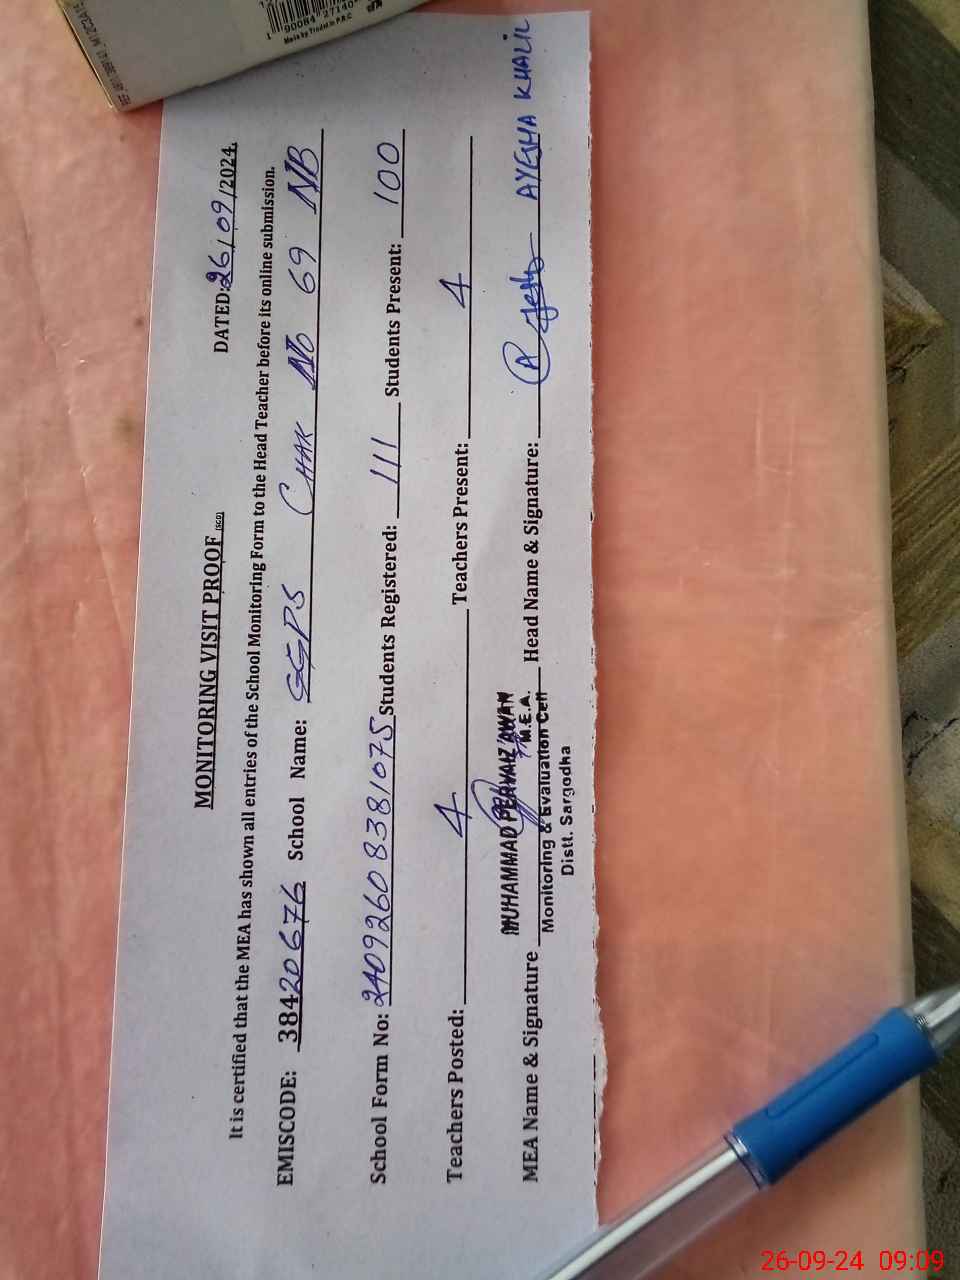 MONITORING VISIT PROOF (SCD)
DATED:26/09/2024.
It is certified that the MEA has shown all entries of the School Monitoring Form to the Head Teacher before its online submission.
EMISCODE: 38420676 School Name: GGPS CHAK NO 69 NB
School Form No: 2409260838381075 Students Registered: 111 Students Present: 100
Teachers Posted: 4 Teachers Present: 4
MEA Name & Signature MUHAMMAD PERVAIZ AWAN Head Name & Signature: Ayesha AYESHA KHALIL
M.E.A.
Monitoring & Evaluation Cell
Distt. Sargodha
26-09-24 09:09